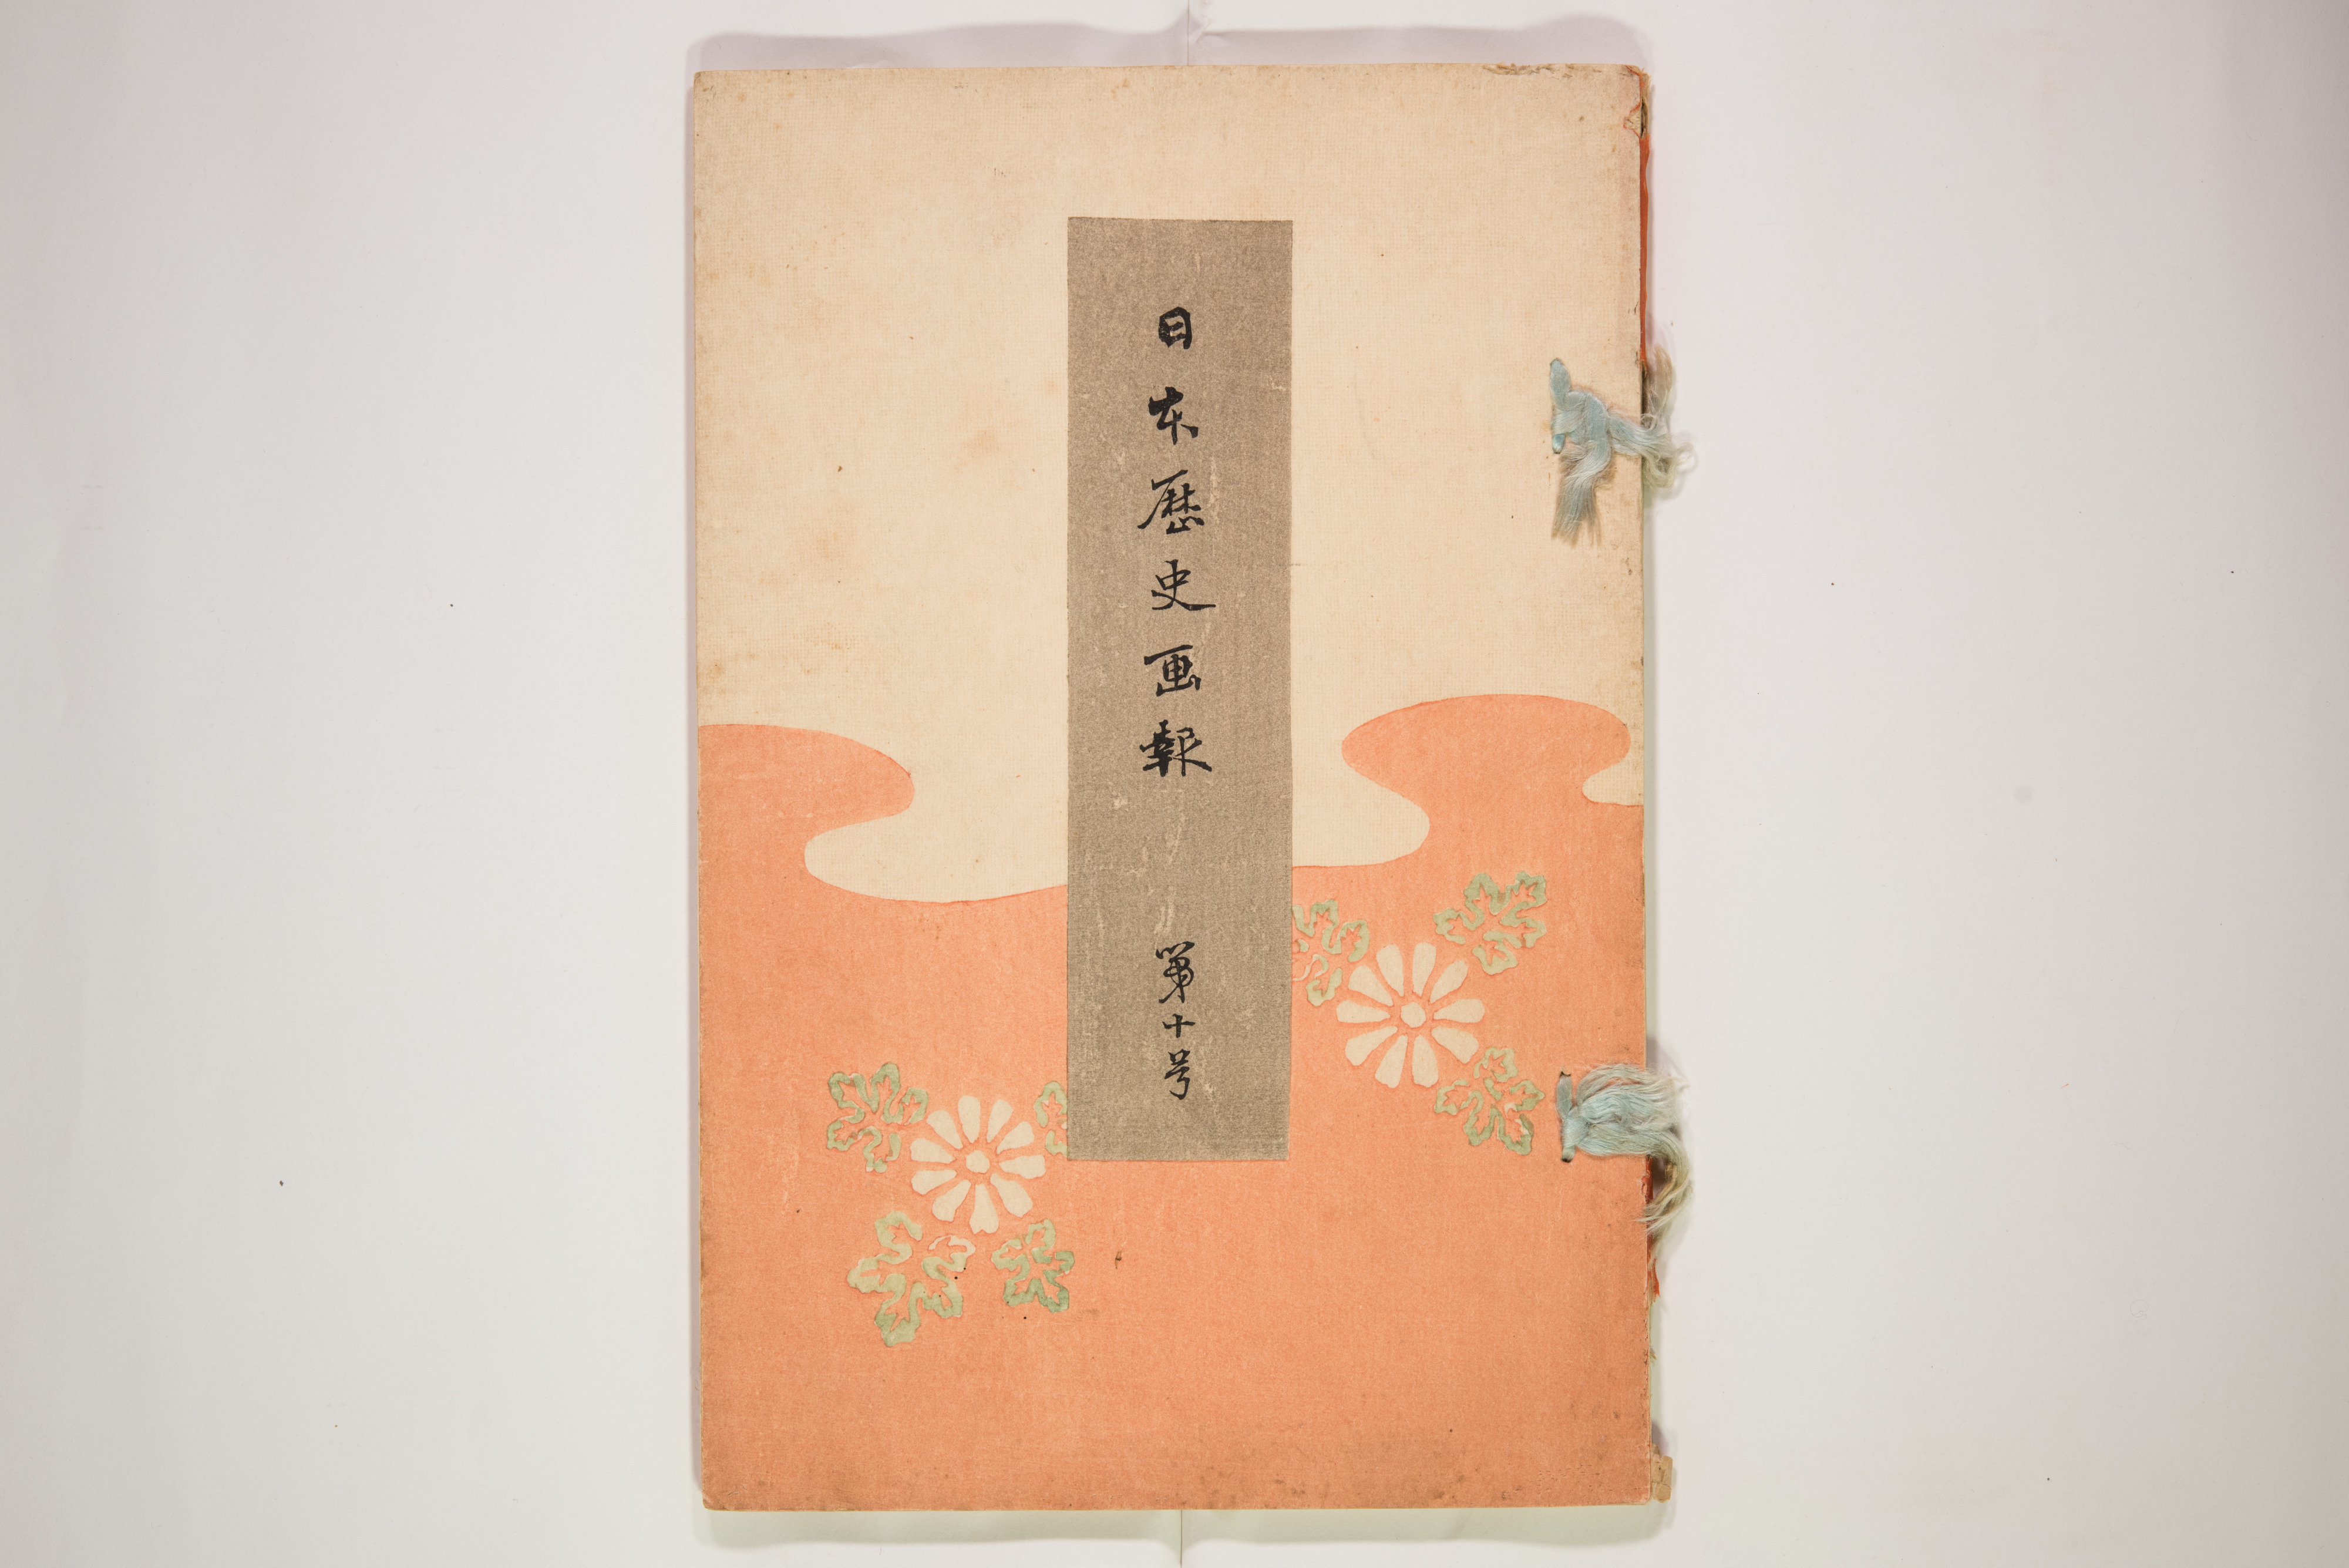 日本歴史画報 第十号